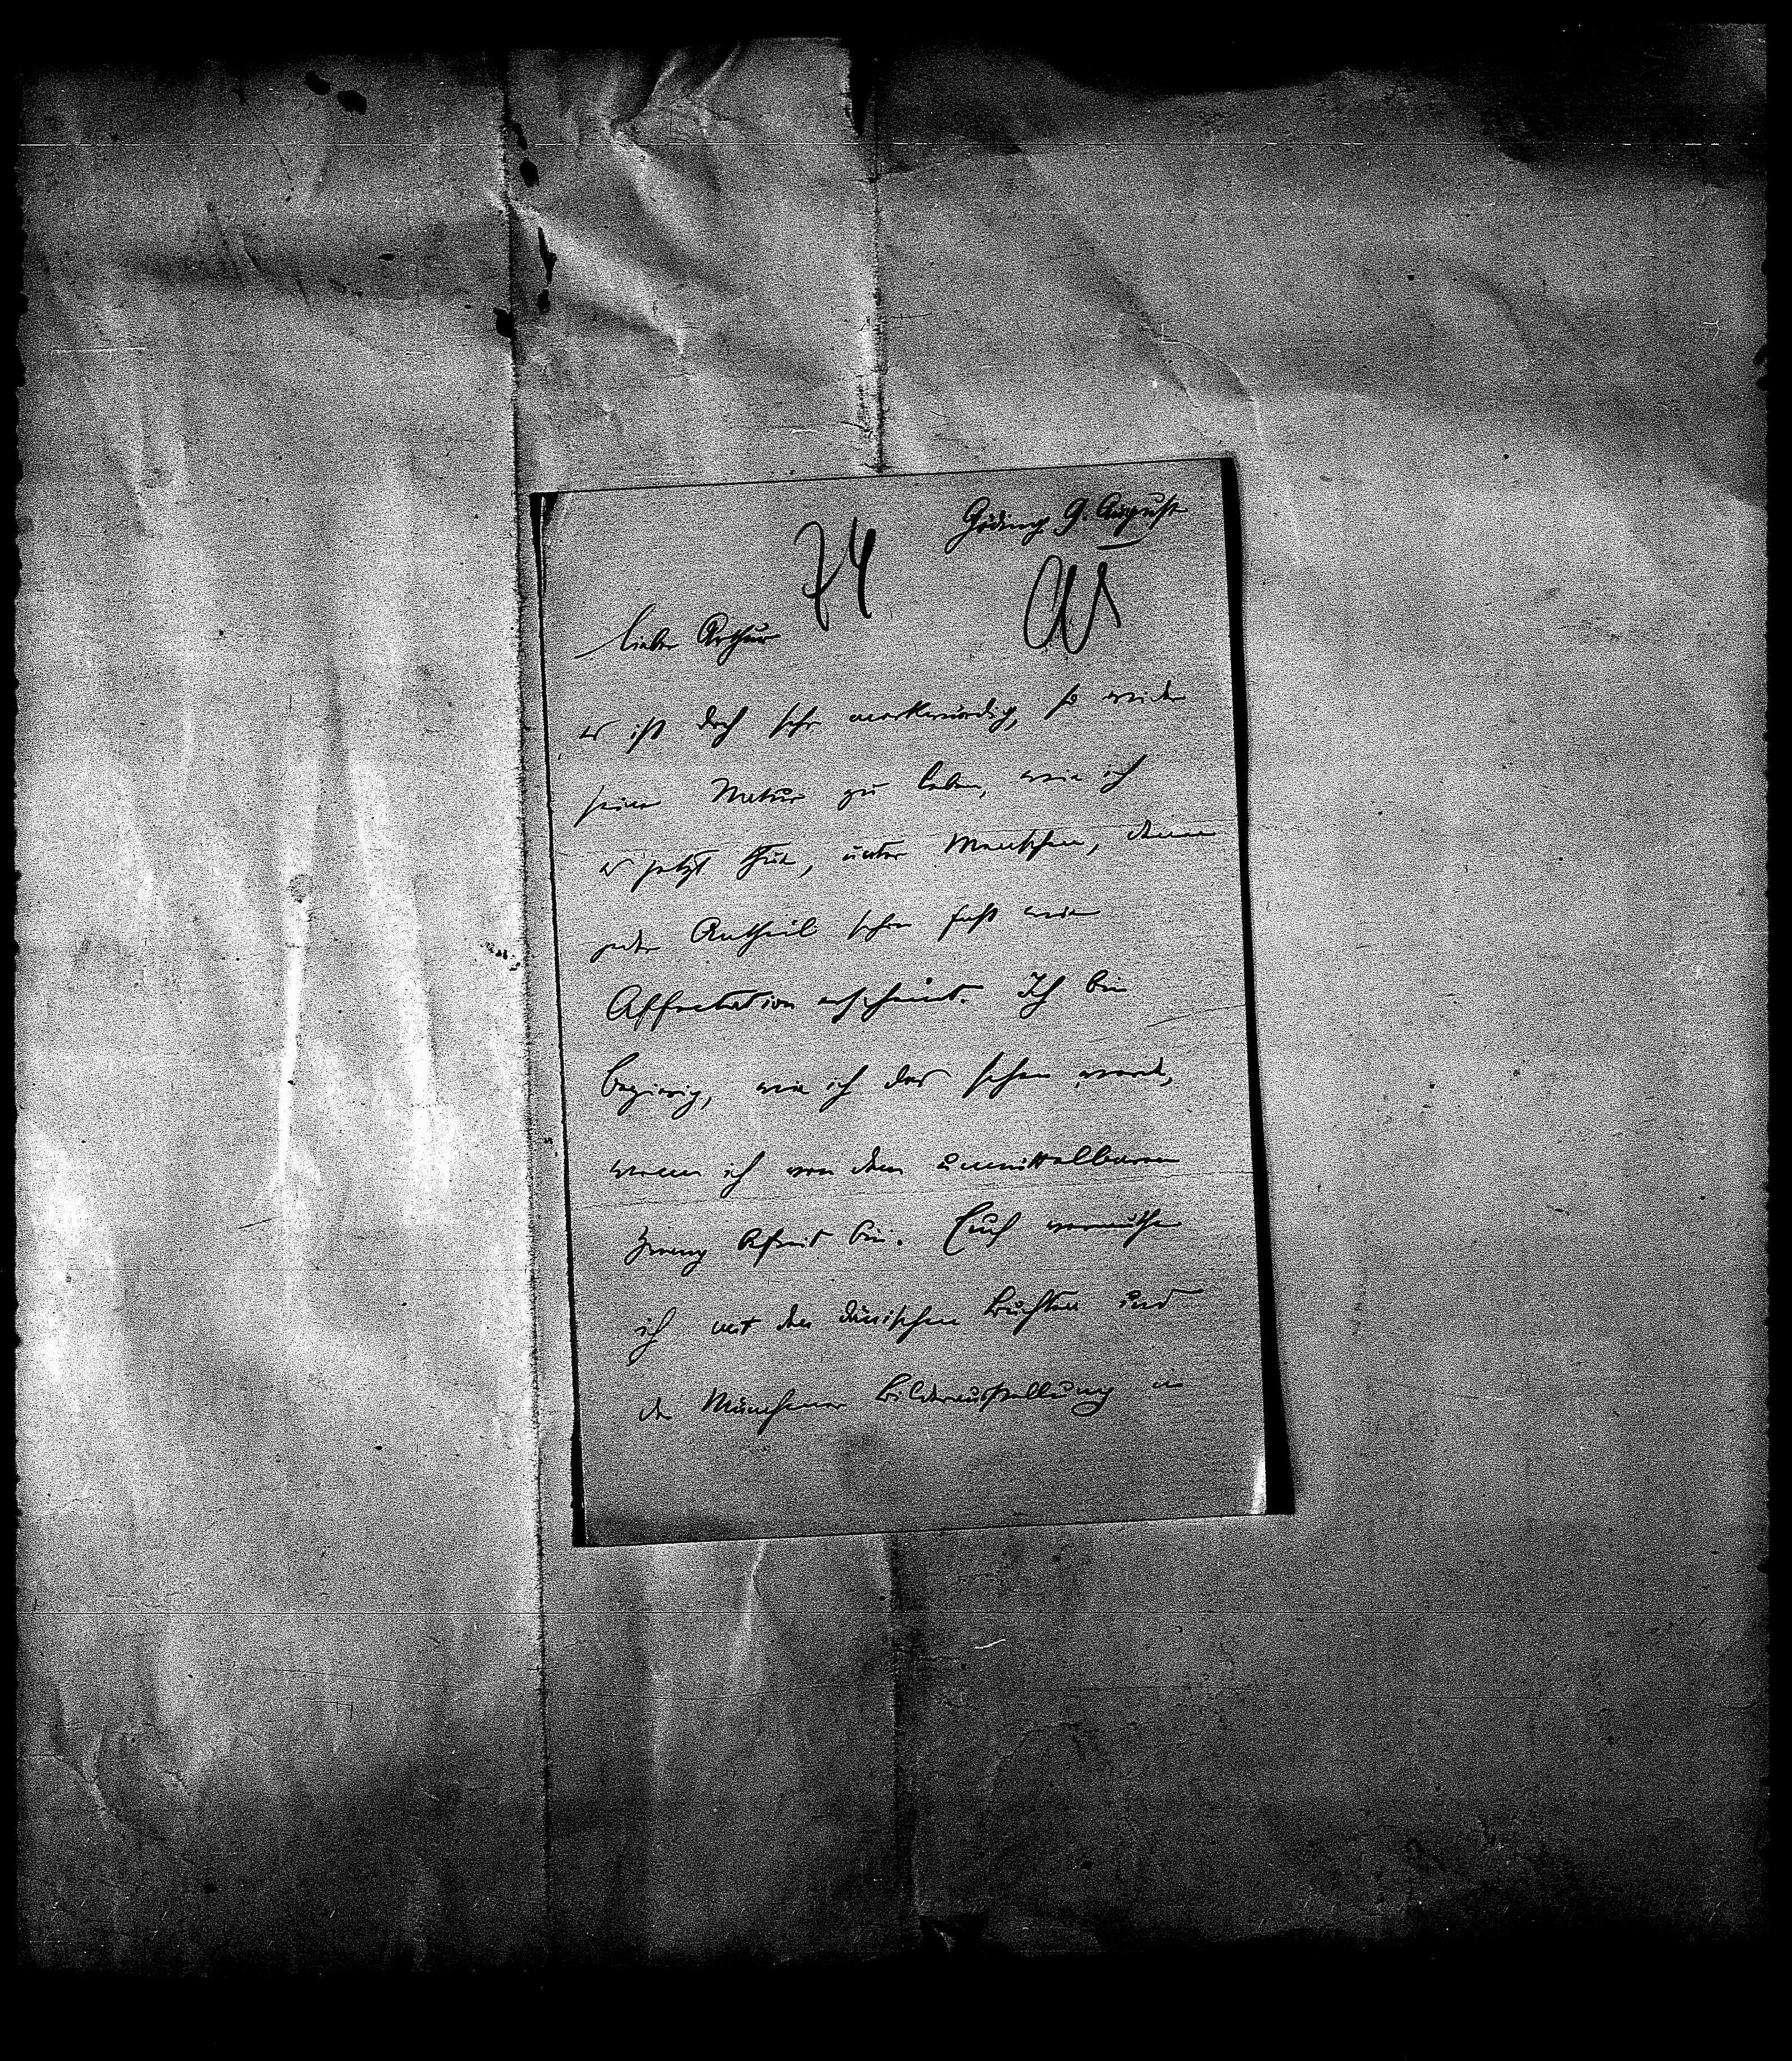 Göding 9. August
74
95
lieber Arthur
es ist doch sehr merkwürdig, so wider
seine Natur zu leben, wie ich
es jetzt thue, unter Menschen, denen
jeder Antheil schon fast wie
Affectation erscheint. Ich bin
begierig, wie ich das sehen werde,
wenn ich von dem unmittelbaren
Zwang befreit bin. Euch vermuthe
ich mit den dänischen Buchten und
der Münchener Bilderausstellung in